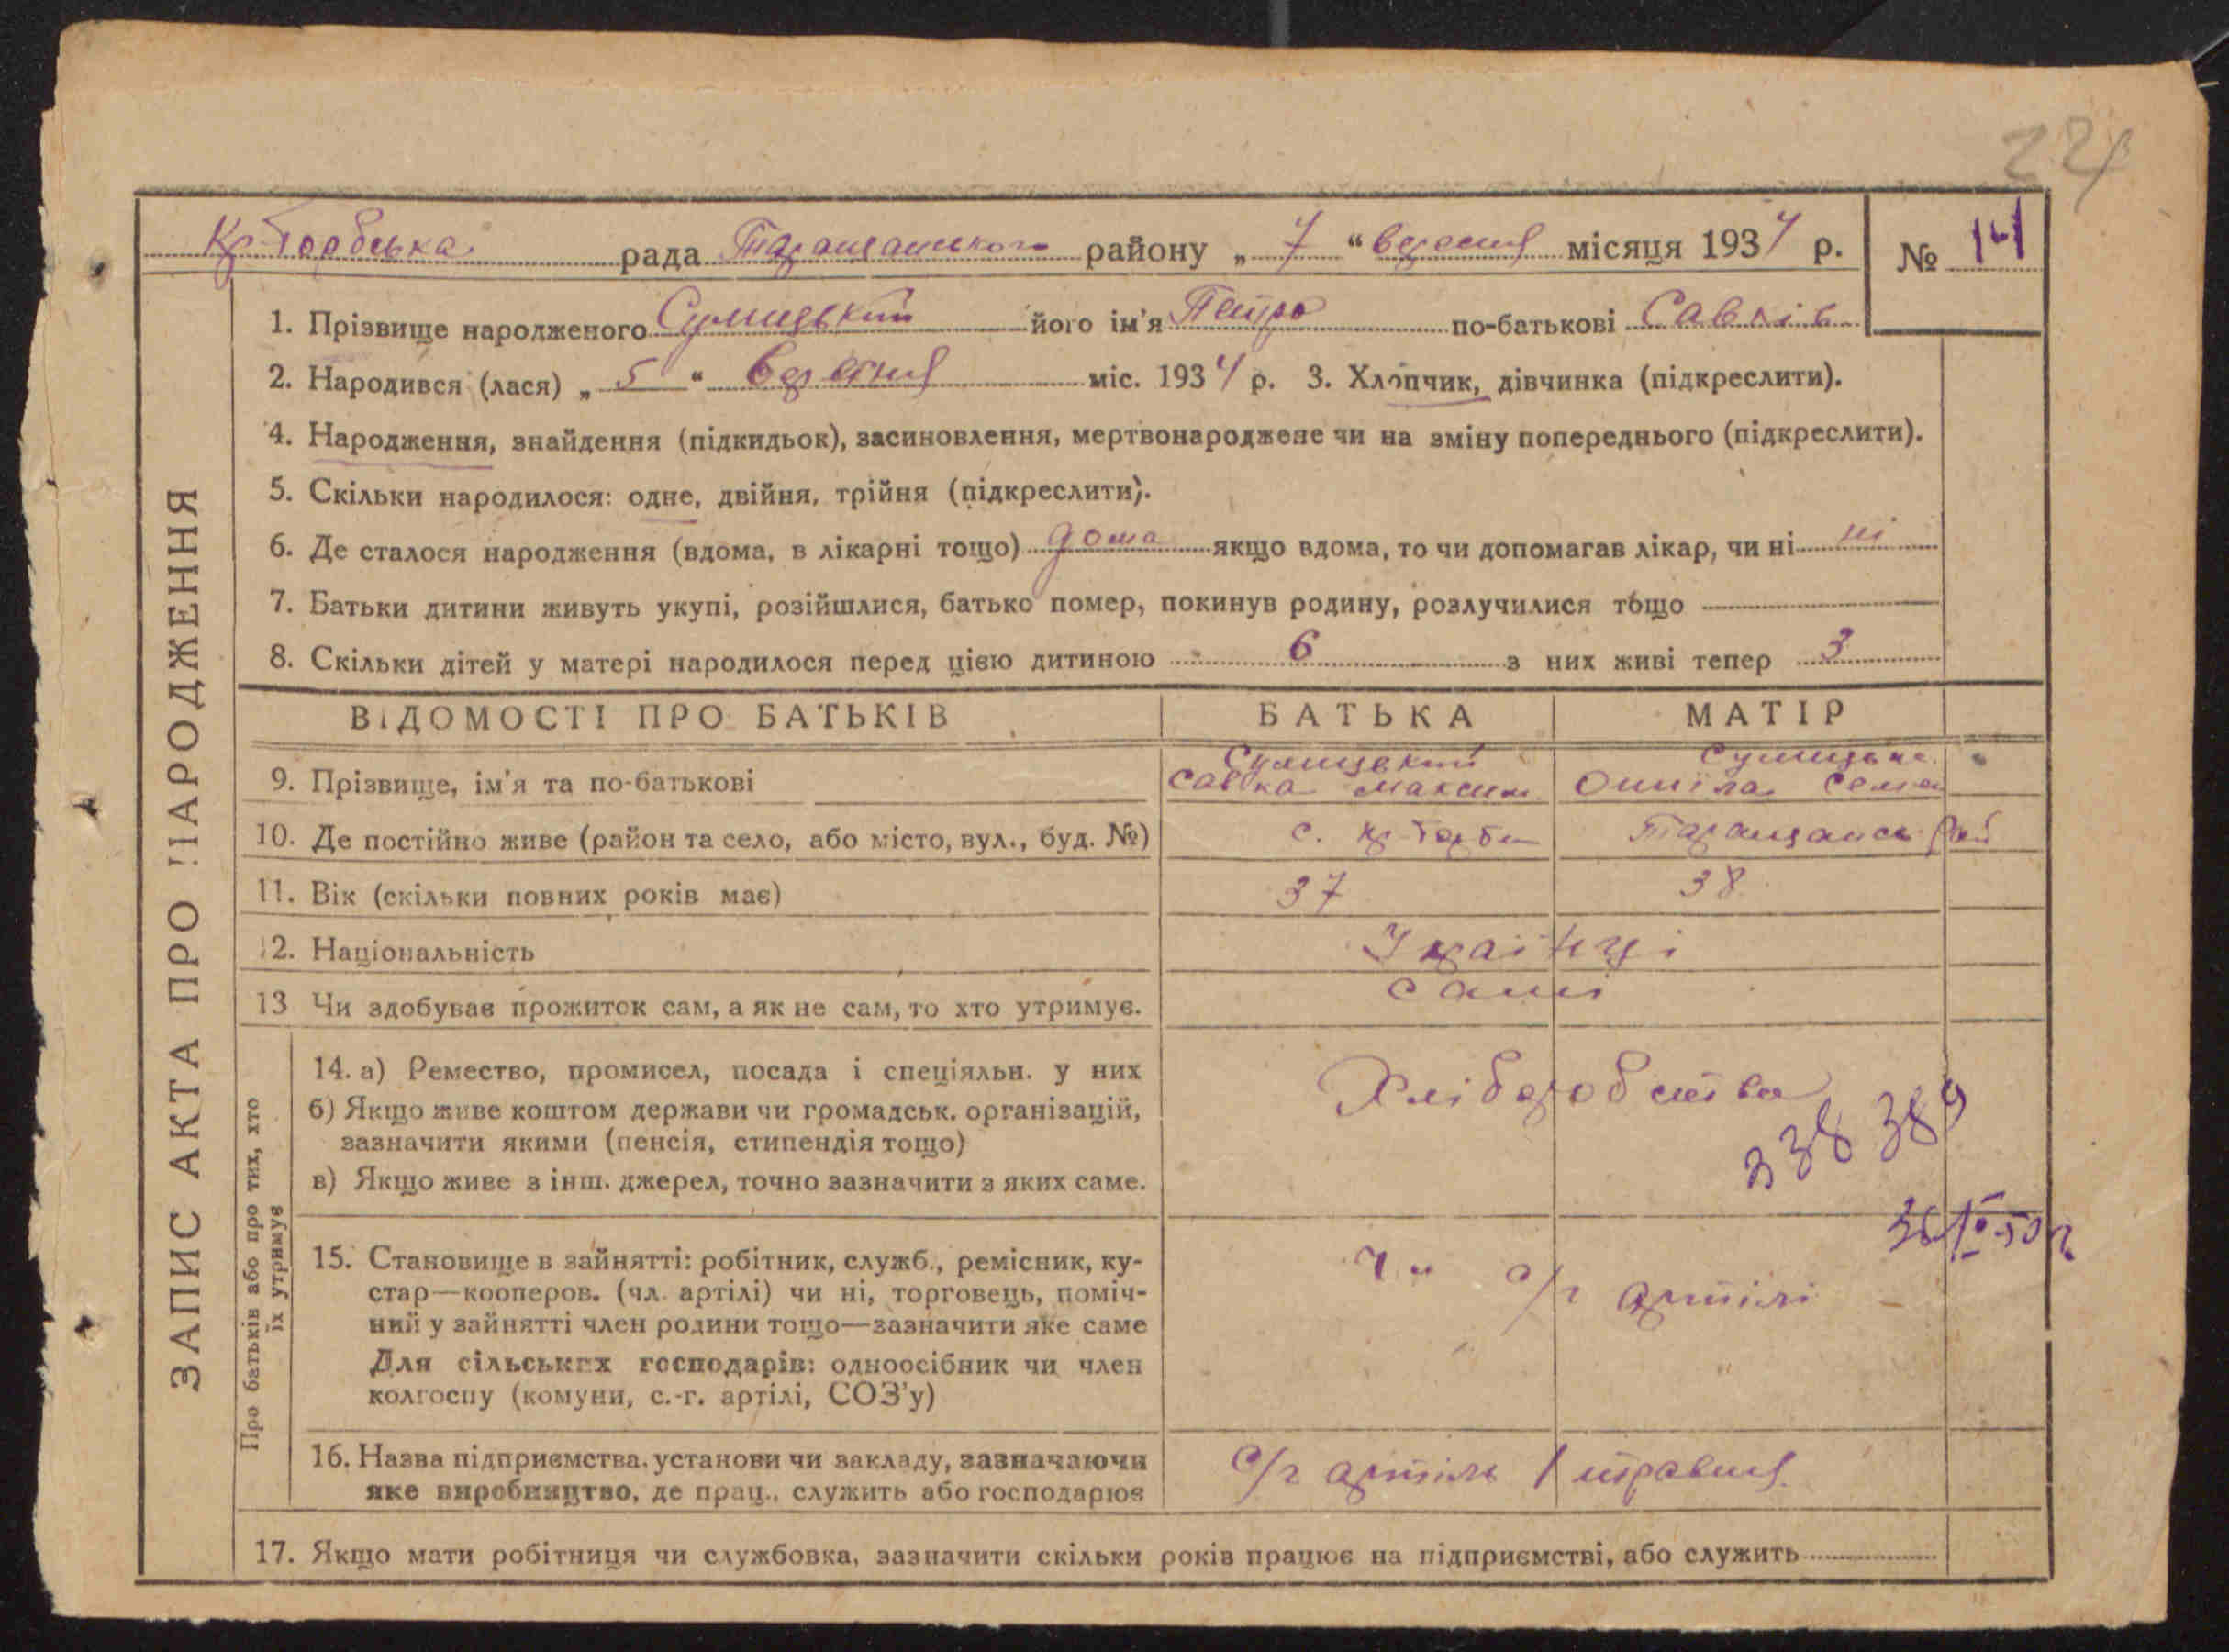 224
Кр-Торбська рада Таращанського району „ 7 “ вересня місяця 1934 р. № 14
1. Прізвище народженого Сумицький його ім'я Петро по-батькові Савків
2. Народився (лася) „ 5 “ вересня міс. 1934 р. 3. Хлопчик, дівчинка (підкреслити).
4. Народження, знайдення (підкидьок), засиновлення, мертвонароджене чи на зміну попереднього (підкреслити).
5. Скільки народилося: одне, двійня, трійня (підкреслити).
6. Де сталося народження (вдома, в лікарні тощо) дома якщо вдома, то чи допомагав лікар, чи ні ні
7. Батьки дитини живуть укупі, розійшлися, батько помер, покинув родину, розлучилися тощо
8. Скільки дітей у матері народилося перед цією дитиною 6 з них живі тепер 3
ЗАПИС АКТА ПРО НАРОДЖЕННЯ
ВІДОМОСТІ ПРО БАТЬКІВ БАТЬКА МАТІР
Сумицький Сумицька
9. Прізвище, ім'я та по-батькові Савка Максим Семен
10. Де постійно живе (район та село, або місто, вул., буд. №) с. Кр-Торби Таращансь рай
11. Вік (скільки повних років має) 37 38
12. Національність Українці
13 Чи здобуває прожиток сам, а як не сам, то хто утримує. сами
Про батьків або про тих, хто
їх утримує
14. а) Ремество, промисел, посада і спеціяльн. у них Хліборобство
б) Якщо живе коштом держави чи громадськ. організацій,
зазначити якими (пенсія, стипендія тощо)
в) Якщо живе з інш. джерел, точно зазначити з яких саме.
338 389
15. Становище в зайнятті: робітник, служб., ремісник, ку-
стар—кооперов. (чл. артілі) чи ні, торговець, поміч- Ч" с/г артілі
ний у зайнятті член родини тощо—зазначити яке саме
Для сільських господарів: одноосібник чи член
колгоспу (комуни, с.-г. артілі, СОЗ'у)
16. Назва підприємства, установи чи закладу, зазначаючи с/г артіль 1 травня
яке виробництво, де прац., служить або господарює
17. Якщо мати робітниця чи службовка, зазначити скільки років працює на підприємстві, або служить